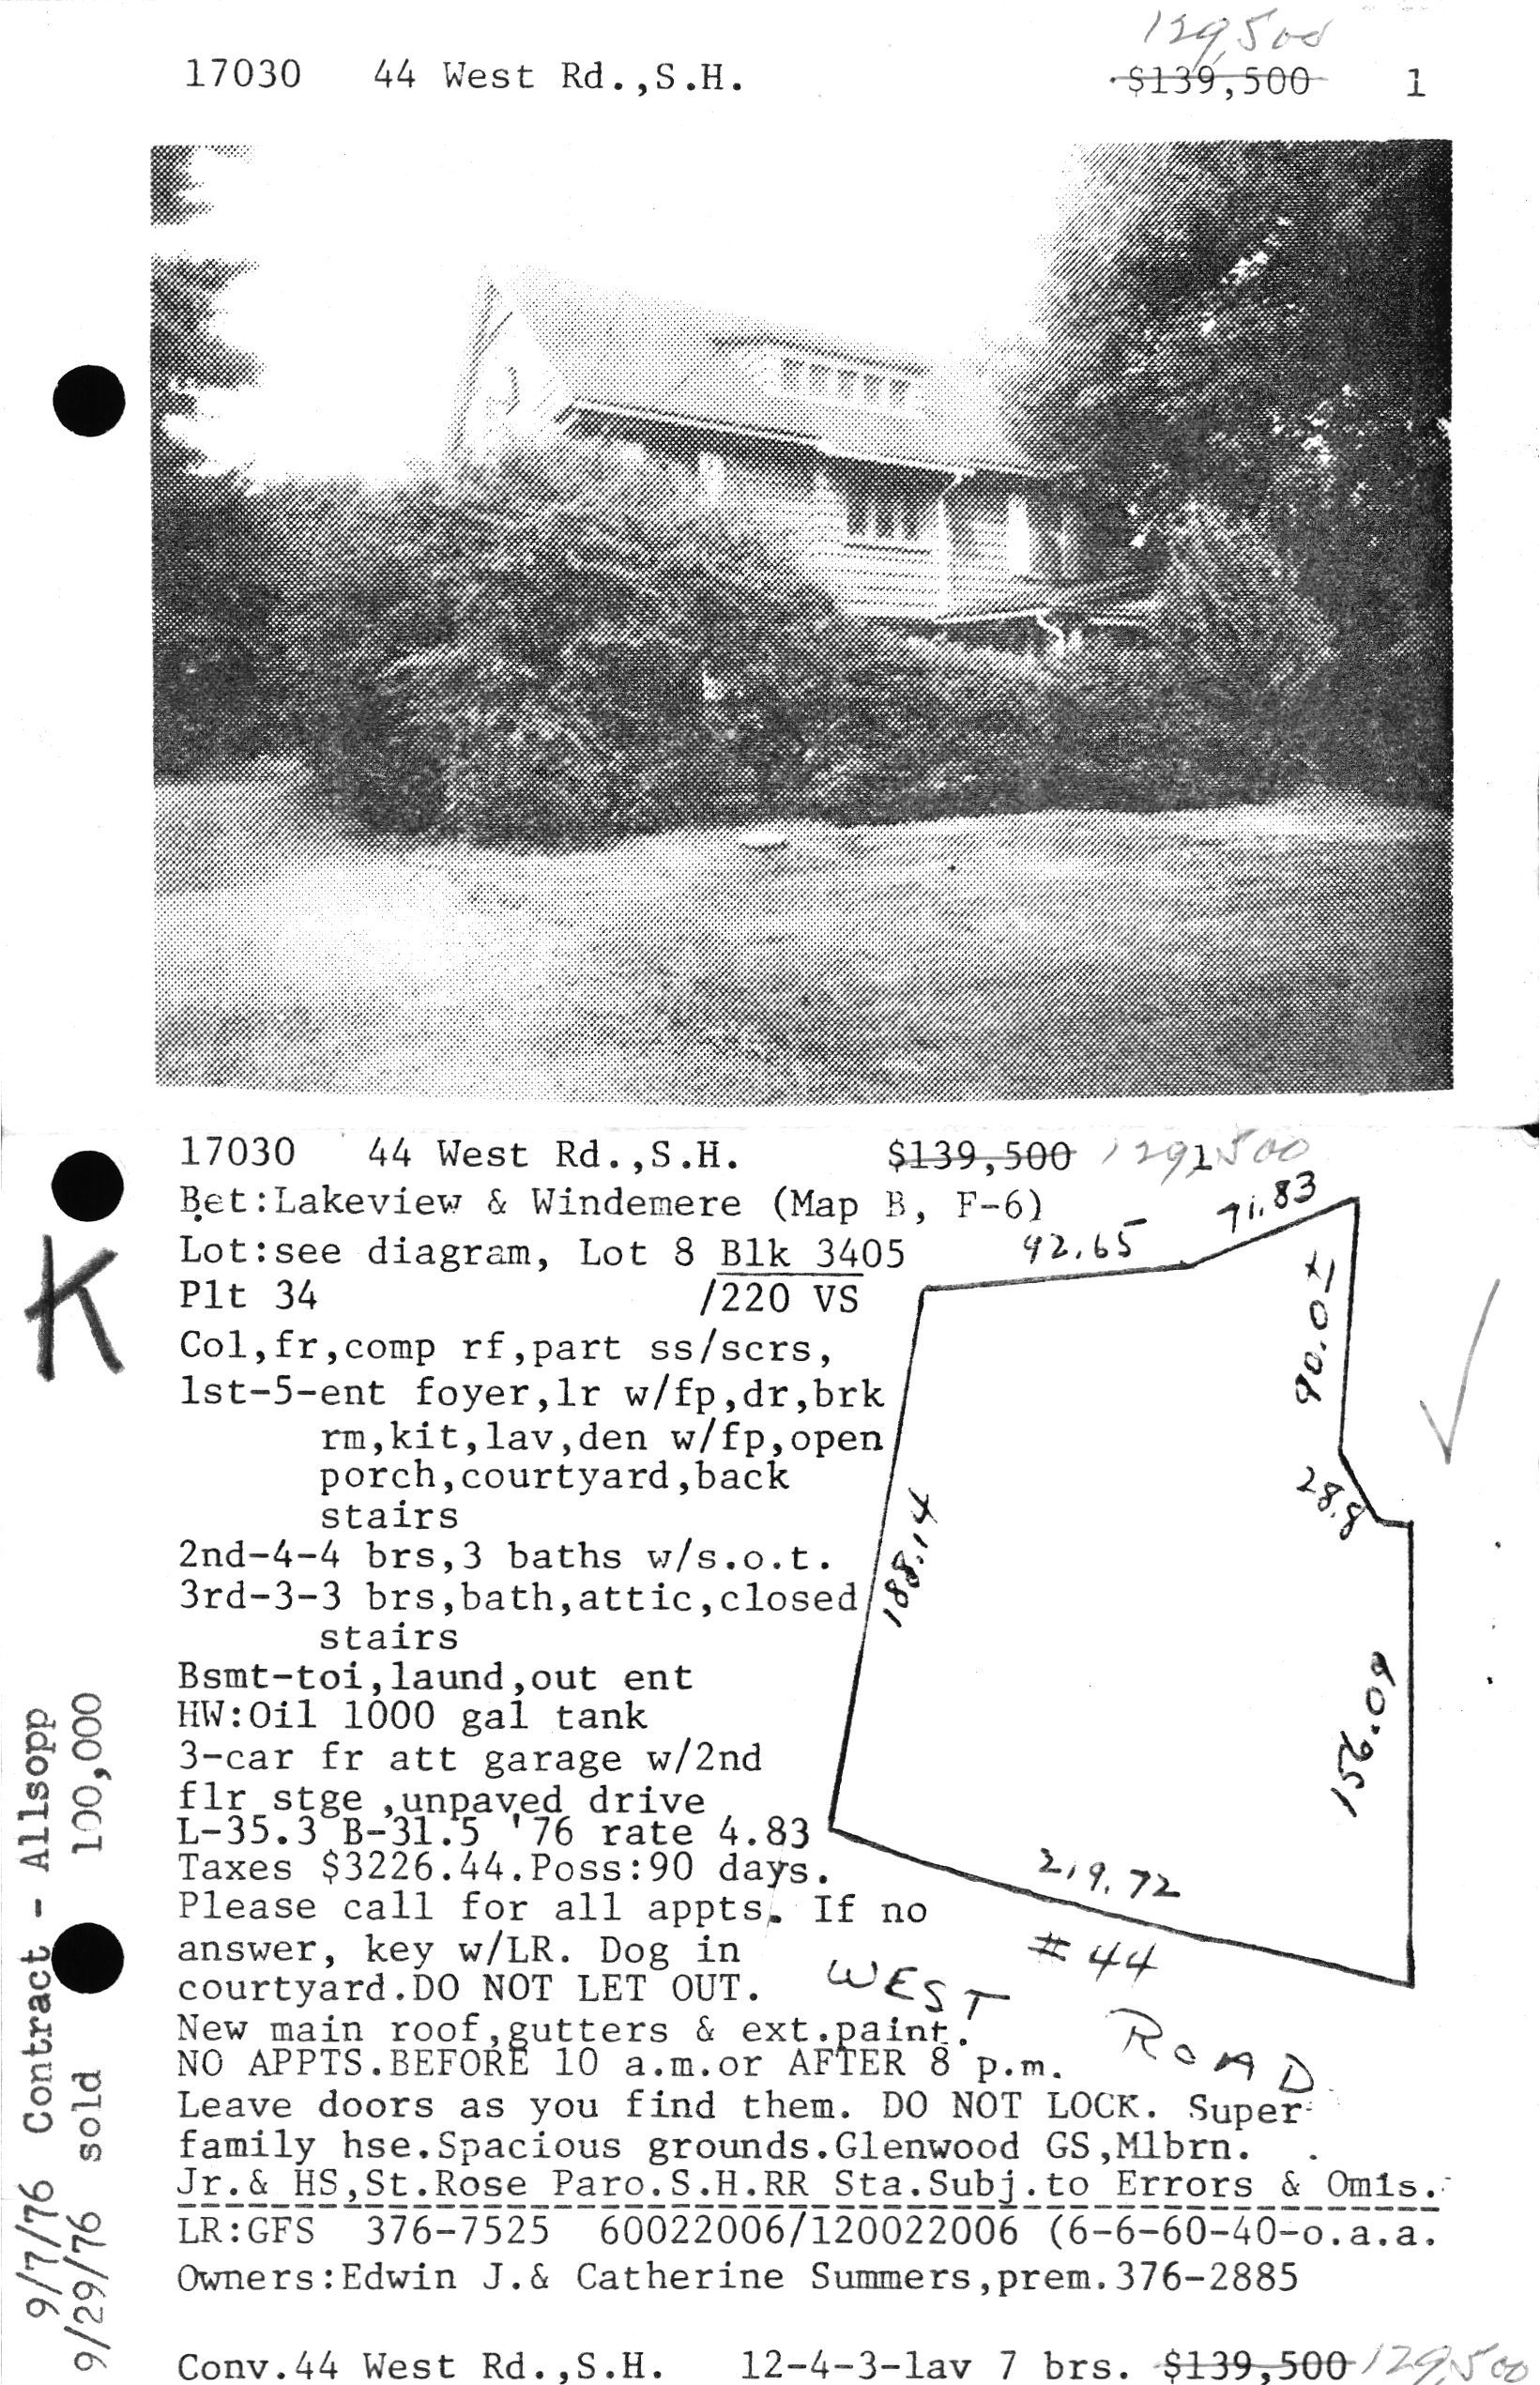 129,500
17030 44 West Rd.,S.H. $139,500 1
17030 44 West Rd.,S.H. $139,500 129,500
1
Bet:Lakeview & Windemere (Map B, F-6)
Lot:see diagram, Lot 8 Blk 3405
Plt 34 /220 VS
Col,fr,comp rf,part ss/scrs,
1st-5-ent foyer,lr w/fp,dr,brk
rm,kit,lav,den w/fp,open
porch,courtyard,back
stairs
2nd-4-4 brs,3 baths w/s.o.t.
3rd-3-3 brs,bath,attic,closed
stairs
Bsmt-toi,laund,out ent
HW:Oil 1000 gal tank
3-car fr att garage w/2nd
flr stge ,unpaved drive
L-35.3 B-31.5 '76 rate 4.83
Taxes $3226.44.Poss:90 days.
Please call for all appts. If no
answer, key w/LR. Dog in
courtyard.DO NOT LET OUT.
New main roof,gutters & ext.paint.
NO APPTS.BEFORE 10 a.m.or AFTER 8 p.m.
Leave doors as you find them. DO NOT LOCK. Super
family hse.Spacious grounds.Glenwood GS,Mlbrn.
Jr.& HS,St.Rose Paro.S.H.RR Sta.Subj.to Errors & Omis.
LR:GFS 376-7525 60022006/120022006 (6-6-60-40-o.a.a.
Owners:Edwin J.& Catherine Summers,prem.376-2885
Conv.44 West Rd.,S.H. 12-4-3-lav 7 brs. $139,500 129,500
92.65
71.83
90.07
28.8
188.14
156.09
219.72
#44
WEST ROAD
K
9/7/76 Contract - Allsopp
9/29/76 sold 100,000